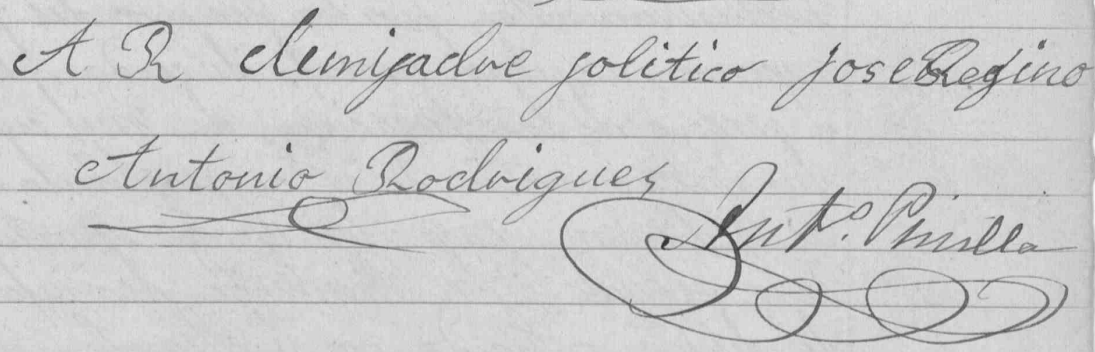 A R de mi padre politico Jose Regino
Antonio Rodriguez
Antº. Pinilla